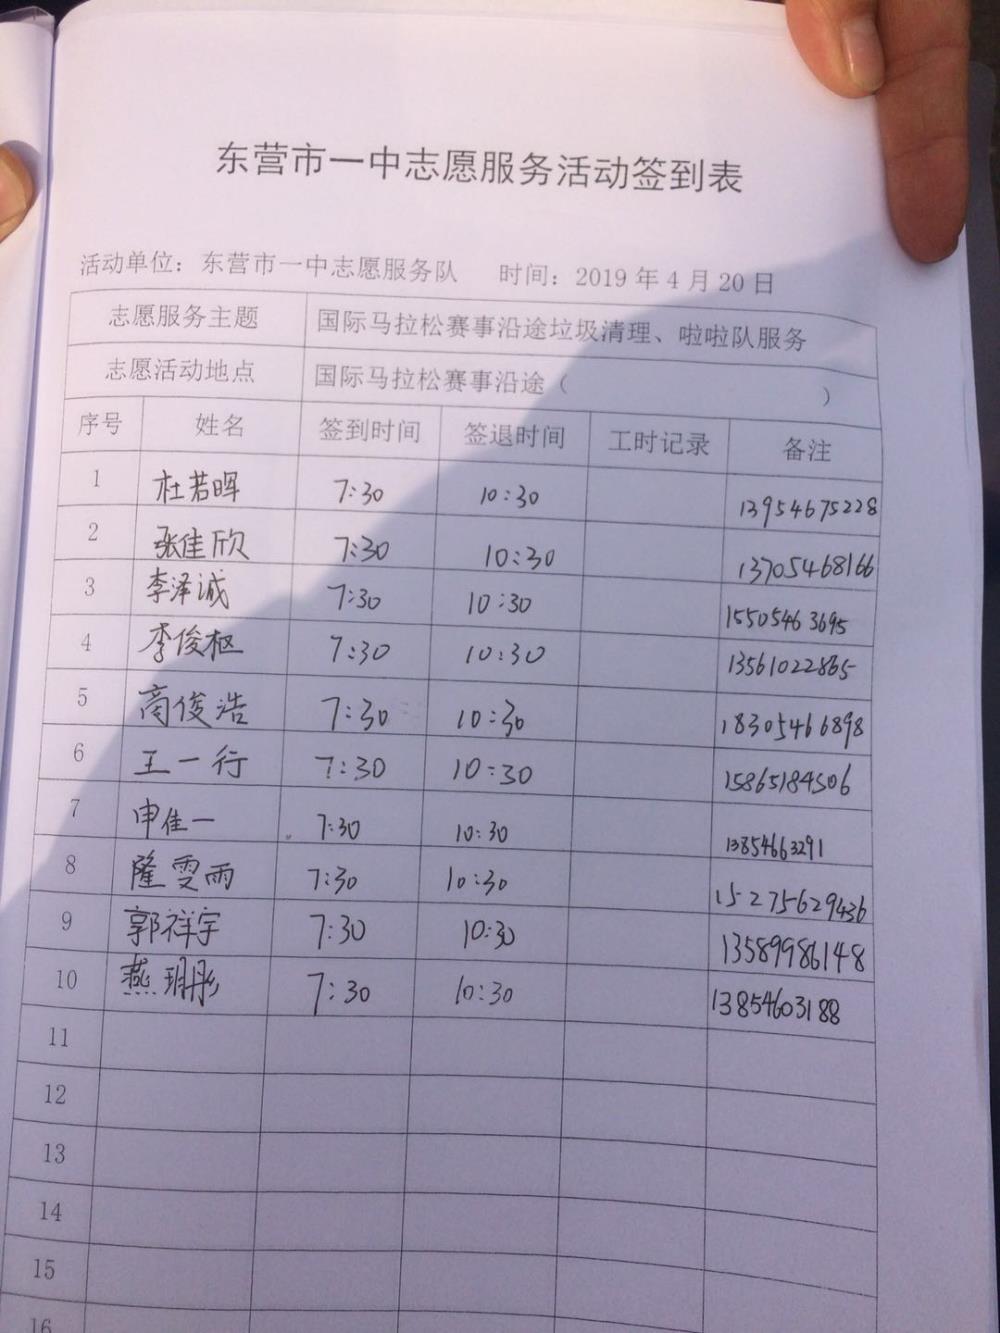 东营市一中志愿服务活动签到表
活动单位：东营市一中志愿服务队 时间：2019 年 4 月 20 日
志愿服务主题 国际马拉松赛事沿途垃圾清理、啦啦队服务
志愿活动地点 国际马拉松赛事沿途（ ）
序号 姓名 签到时间 签退时间 工时记录 备注
1 杜若晖 7:30 10:30 13954675228
2 张佳欣 7:30 10:30 13705468166
3 李泽诚 7:30 10:30 15505463695
4 李俊枢 7:30 10:30 13561022865
5 商俊浩 7:30 10:30 18305466898
6 王一行 7:30 10:30 15865184506
7 申佳一 7:30 10:30 13854663291
8 隆雯雨 7:30 10:30 15275629436
9 郭祥宇 7:30 10:30 13589986148
10 燕玥彤 7:30 10:30 13854603188
11
12
13
14
15
16